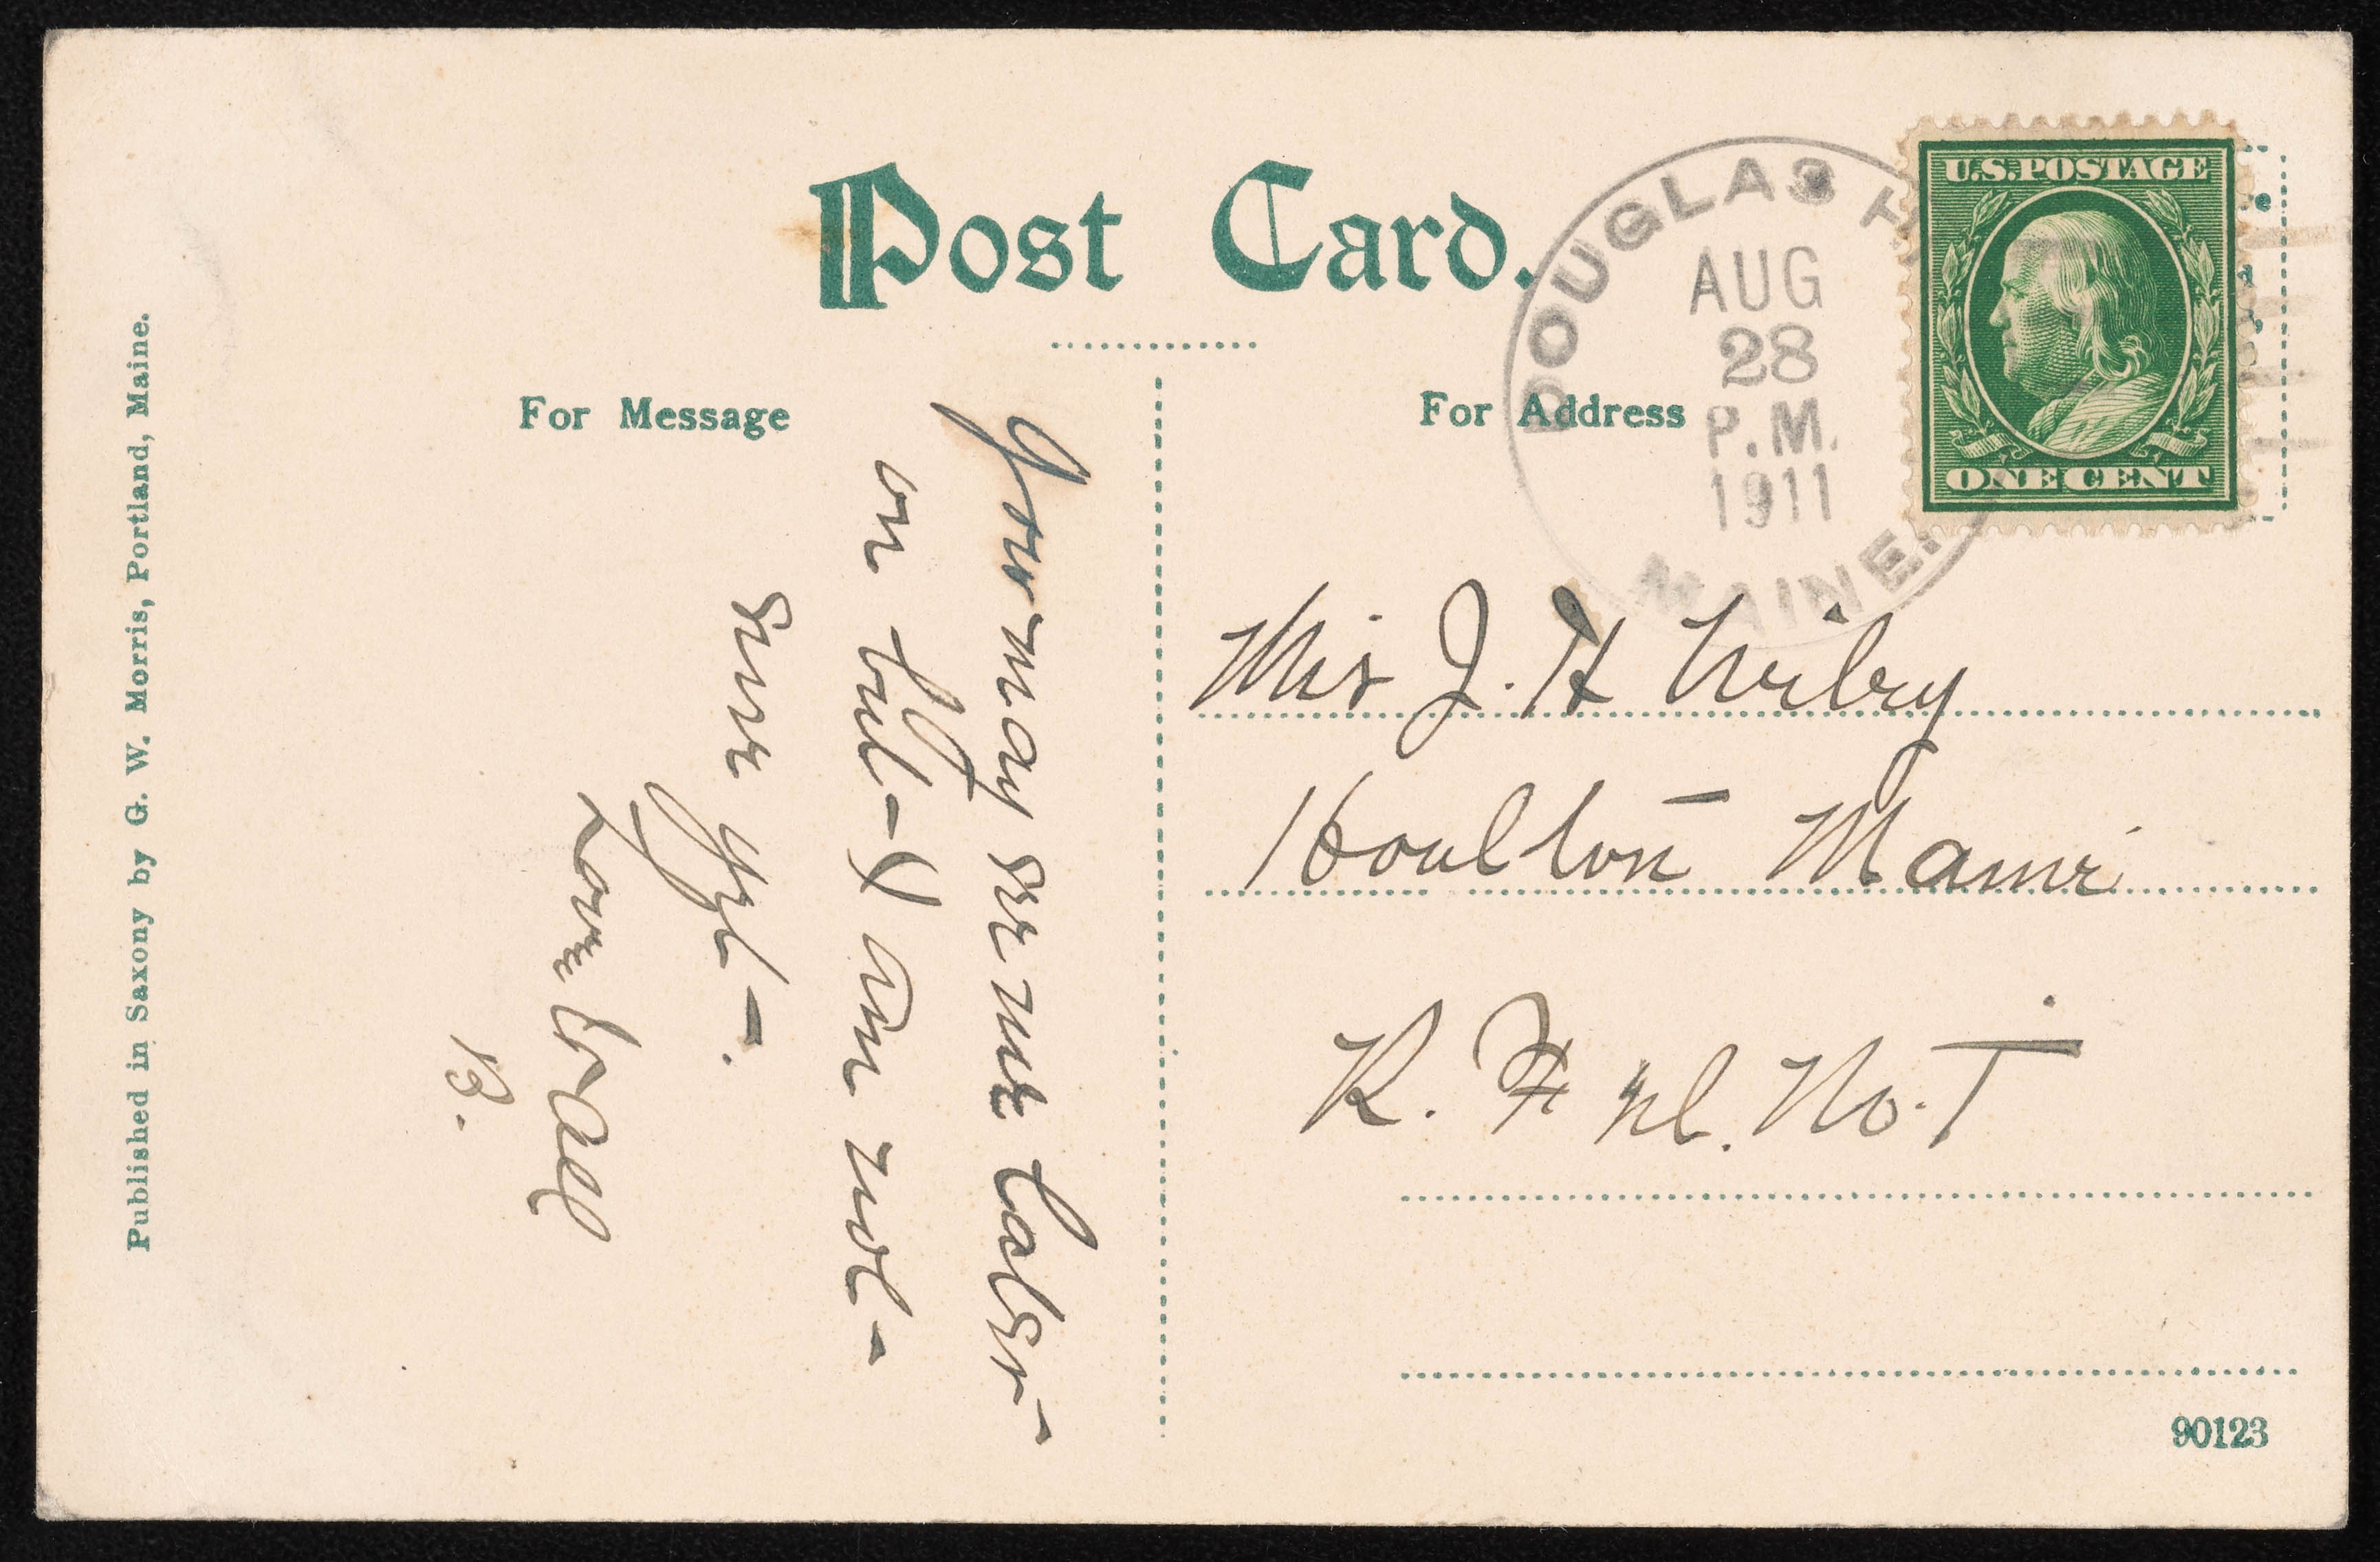 Post Card.
For Message
For Address
DOUGLAS
AUG
28
P.M.
1911
MAINE.
U.S. POSTAGE
ONE CENT
You may see me later
on but I am not
sure yet.
Love to all
B.
Mrs J. H Wiley
Houlton Maine
R. F. D. No. 1
Published in Saxony by G. W. Morris, Portland, Maine.
90123